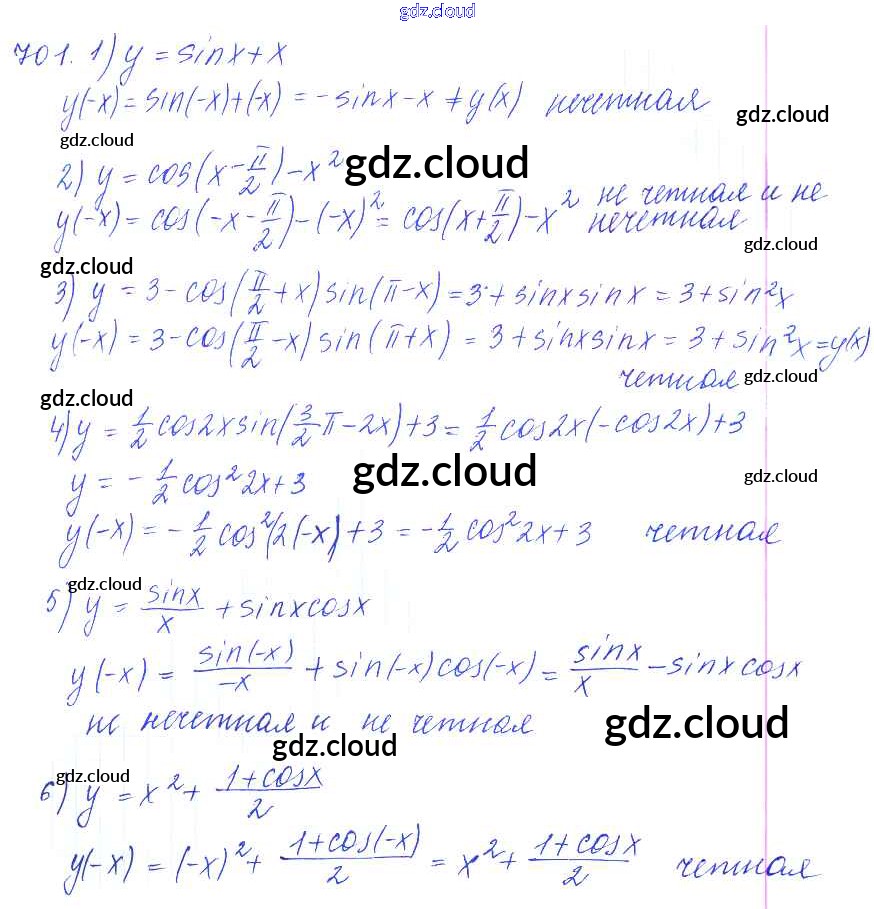 gdz.cloud
701. 1) y = sinx + x
y(-x) = sin(-x)+(-x) = -sinx-x ≠ y(x) нечетная
gdz.cloud
gdz.cloud
2) y = cos(x - π/2) - x²
gdz.cloud
y(-x) = cos(-x - π/2) - (-x)² = cos(x + π/2) - x² не четная и не нечетная
gdz.cloud
gdz.cloud
3) y = 3 - cos(π/2 + x) sin(π - x) = 3 + sinx sinx = 3 + sin²x
y(-x) = 3 - cos(π/2 - x) sin(π + x) = 3 + sinx sinx = 3 + sin²x = y(x)
четная
gdz.cloud
gdz.cloud
4) y = 1/2 cos2x sin(3/2 π - 2x) + 3 = 1/2 cos2x(-cos2x) + 3
y = - 1/2 cos² 2x + 3
gdz.cloud
gdz.cloud
y(-x) = - 1/2 cos²(2(-x) + 3 = - 1/2 cos² 2x + 3 четная
gdz.cloud
5) y = sinx/x + sinxcosx
y(-x) = sin(-x)/-x + sin(-x)cos(-x) = sinx/x - sinx cosx
не нечетная и не четная
gdz.cloud
gdz.cloud
gdz.cloud
6) y = x² + 1+cosx/2
y(-x) = (-x)² + 1+cos(-x)/2 = x² + 1+cosx/2 четная